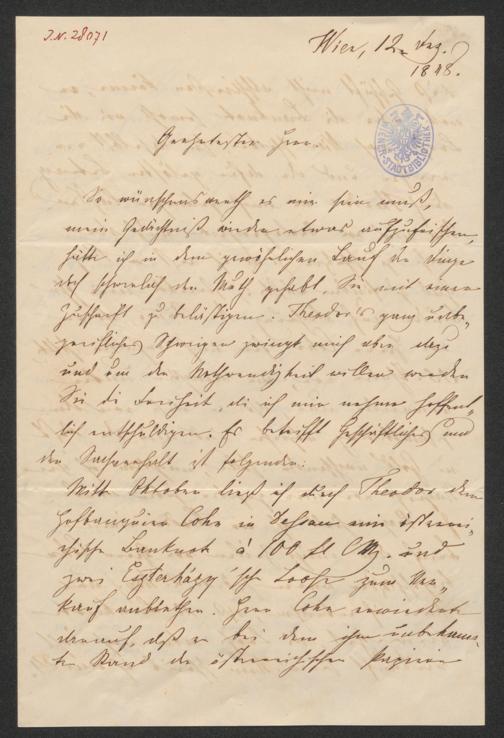 J.N. 28071
Wien, 12 Dez.
1848.
WIENER STADTBIBLIOTHEK
Geehrtester Herr.
So wünschenswerth es mir sein muß,
mein Gedächtniß wieder etwas aufzufrischen,
hätte ich in dem gewöhnlichen Lauf der Dinge
doch schwerlich den Muth gehabt, Sie mit einer
Zuschrift zu belästigen. Theodor's ganz unbe-
greifliches Schweigen zwingt mich aber dazu
und um der Nothwendigkeit willen werden
Sie die Freiheit, die ich mir nehme hoffent-
lich entschuldigen. Es betrifft Geschäftliches und
der Sachverhalt ist folgender:
Mitte Oktober ließ ich durch Theodor dem
Hofbanquier Cohn in Dessau eine österrei-
chische Banknote à 100 fl CM. und
zwei Eszterházy'sche Loose zum Ver-
kauf anbiethen. Herr Cohn erwiederte
darauf, daß er bei dem ihm unbekann-
ten Stand der österreichischen Papiere